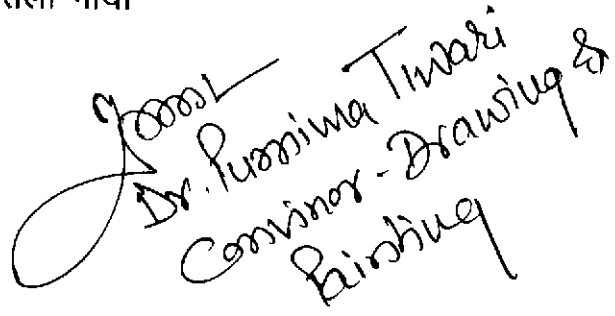 Dr. Purnima Tiwari
Convinor - Drawing &
Painting